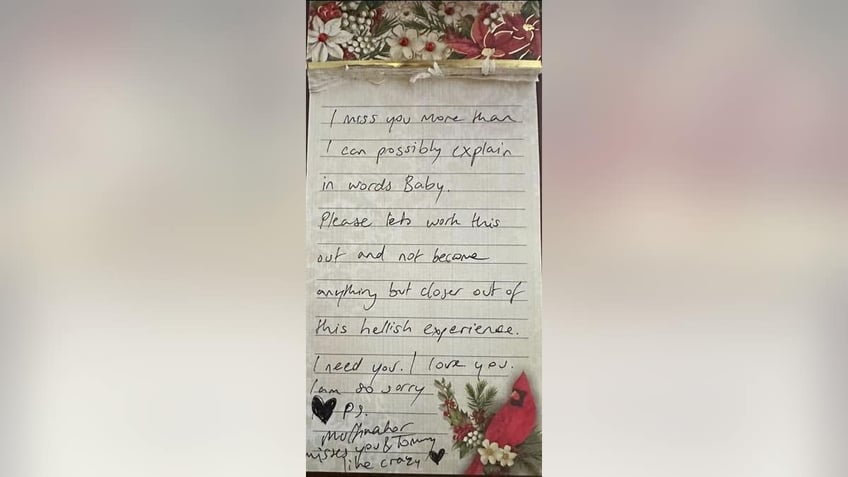 I miss you more than
I can possibly explain
in words Baby.
Please lets work this
out and not become
anything but closer out of
this hellish experience.
I need you. I love you.
I am so sorry
Ps.
misses you & Tommy
like crazy